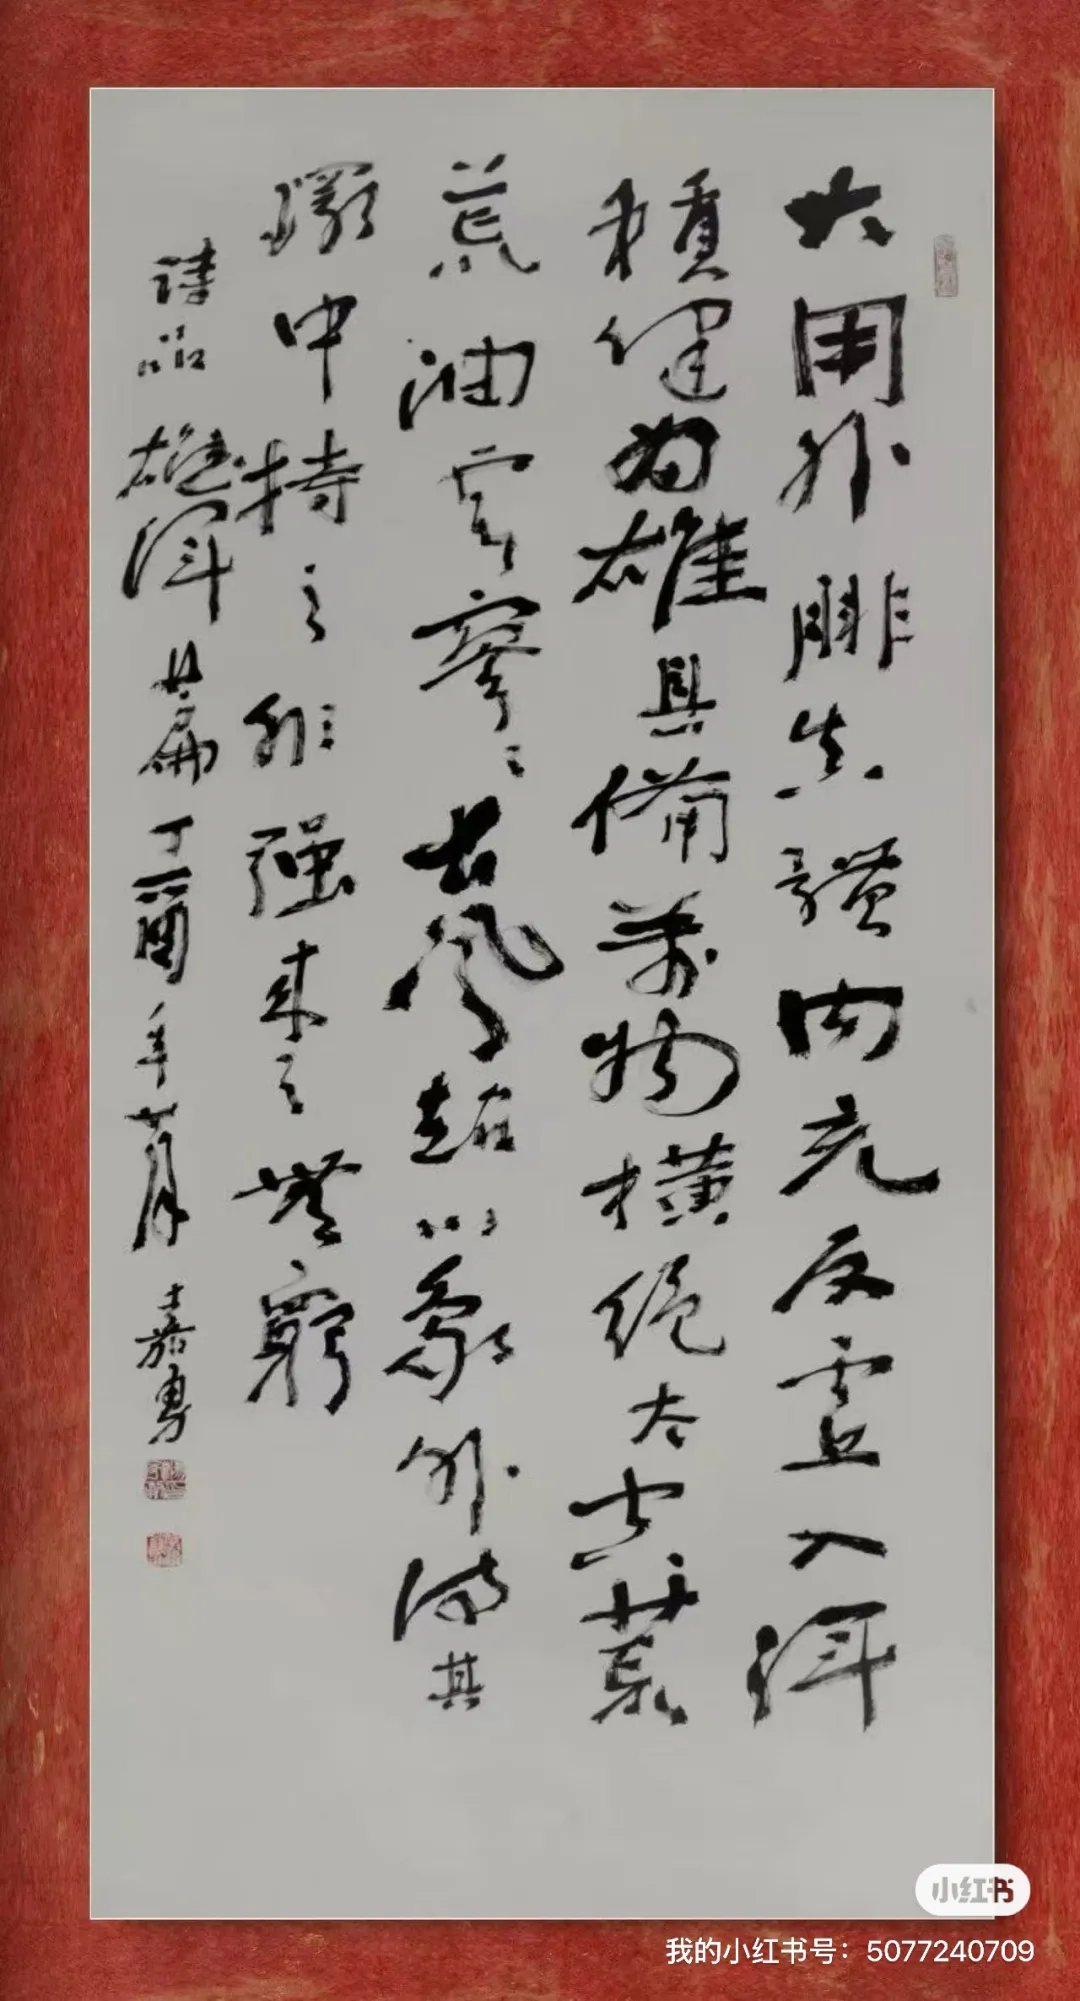 大用外腓真體内充反虚入渾
積健为雄具備萬物横绝太空荒
荒油雲寥〻長風超以象外得其
環中持之匪强来之無窮
詩品雄渾篇丁酉年七月嘉勇
小红书
我的小红书号：5077240709